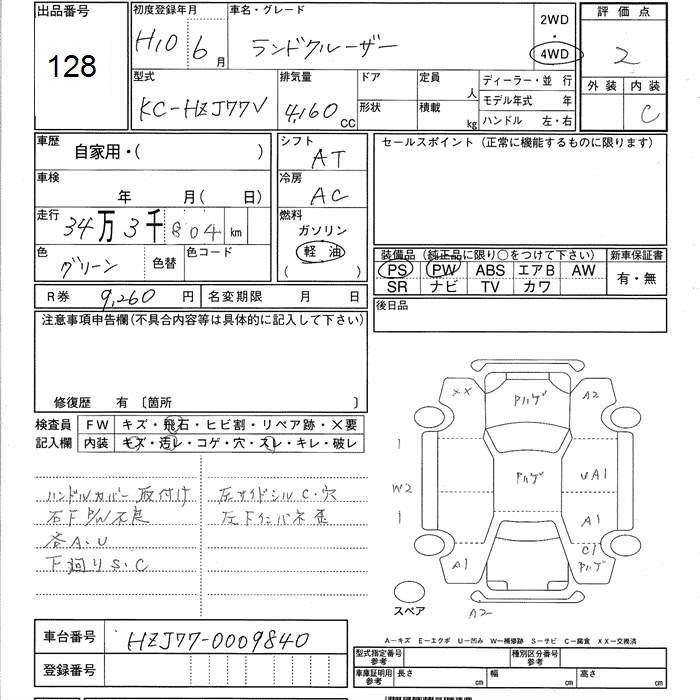 出品番号 初度登録年月 車名・グレード 2WD 評価点
128 H10 6月 ランドクルーザー ・ 4WD 2
型式 排気量 ドア 定員 人 ディーラー・並 行 外装 内装
KC-HZJ77V 4,160 CC 形状 積載 kg モデル年式 年 C
ハンドル 左・右
車歴 自家用・( ) シフト AT セールスポイント (正常に機能するものに限ります)
車検 年 月( 日) 冷房 AC
走行 34万3千804 km 燃料 ガソリン
軽油
( )
色 グリーン 色替 色コード
装備品 (純正品に限り○をつけて下さい) 新車保証書
PS PW ABS エアB AW 有・無
SR ナビ TV カワ
R券 9,260 円 名変期限 月 日 後日品
注意事項申告欄(不具合内容等は具体的に記入して下さい)
修復歴 有 〔箇所 〕
検査員 FW キズ・飛石・ヒビ割・リペア跡・×要
記入欄 内装 キズ・汚レ・コゲ・穴・スレ・キレ・破レ
ハンドルカバー取付け 左サイドシルC・穴
右F P/W不良
各A・U
下廻りS・C
XX Pハゲ A2
1 Pハゲ UA1
W2
1 A1
C1
A1 Pハゲ
スペア A2
A-キズ E-エクボ U-凹み W-補修跡 S-サビ C-腐食 XX-交換済
車台番号 HZJ77-0009840
登録番号
型式指定番号 参考 種別区分番号 参考
車庫証明用 参考 長さ cm 幅 cm 高さ cm